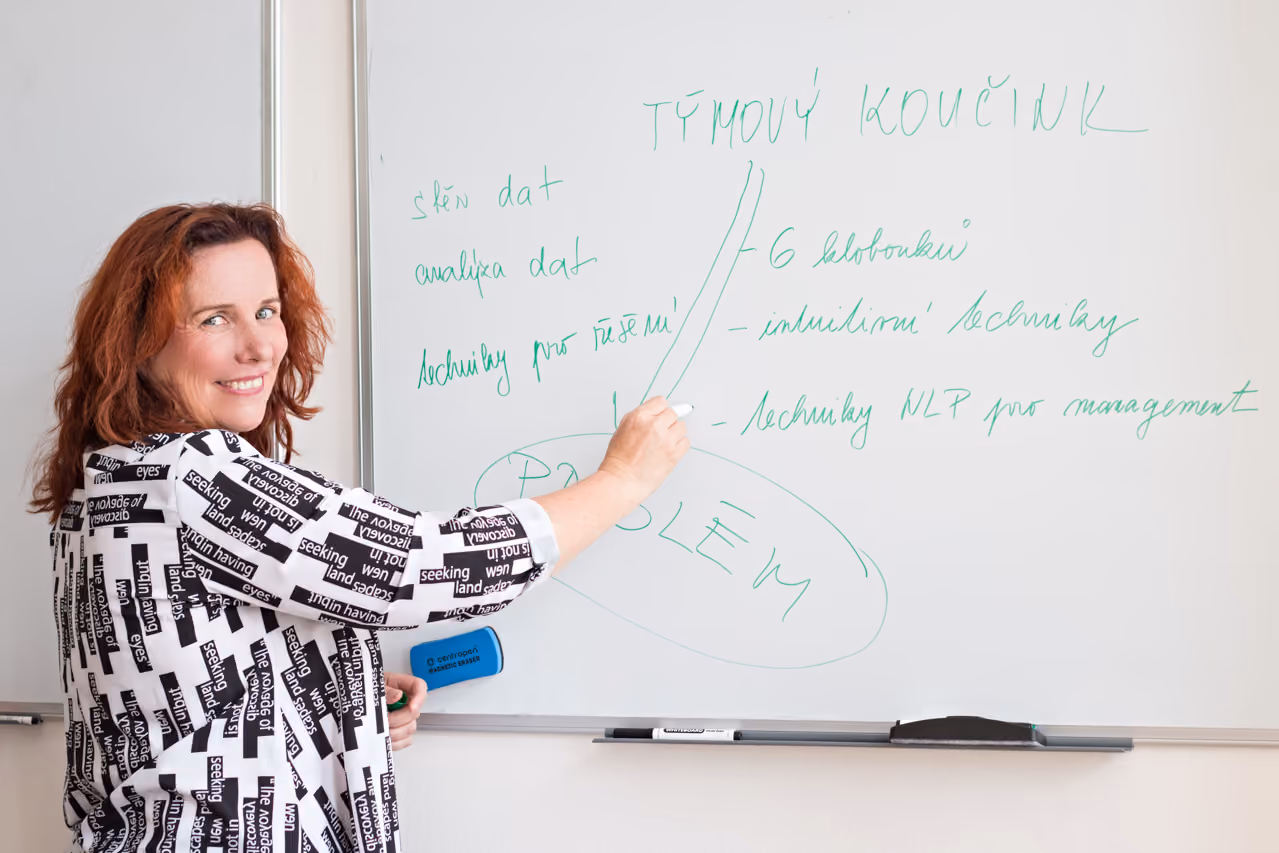 TÝMOVÝ KOUČINK
sběr dat
analýza dat
techniky pro řešení
- 6 klobouků
- intuitivní techniky
- techniky NLP pro management
centropen
MAGNETIC ERASER
WHITEBOARD marker
"the voyage of
discovery
is not in
seeking
new
landscapes
but in having
new
eyes"